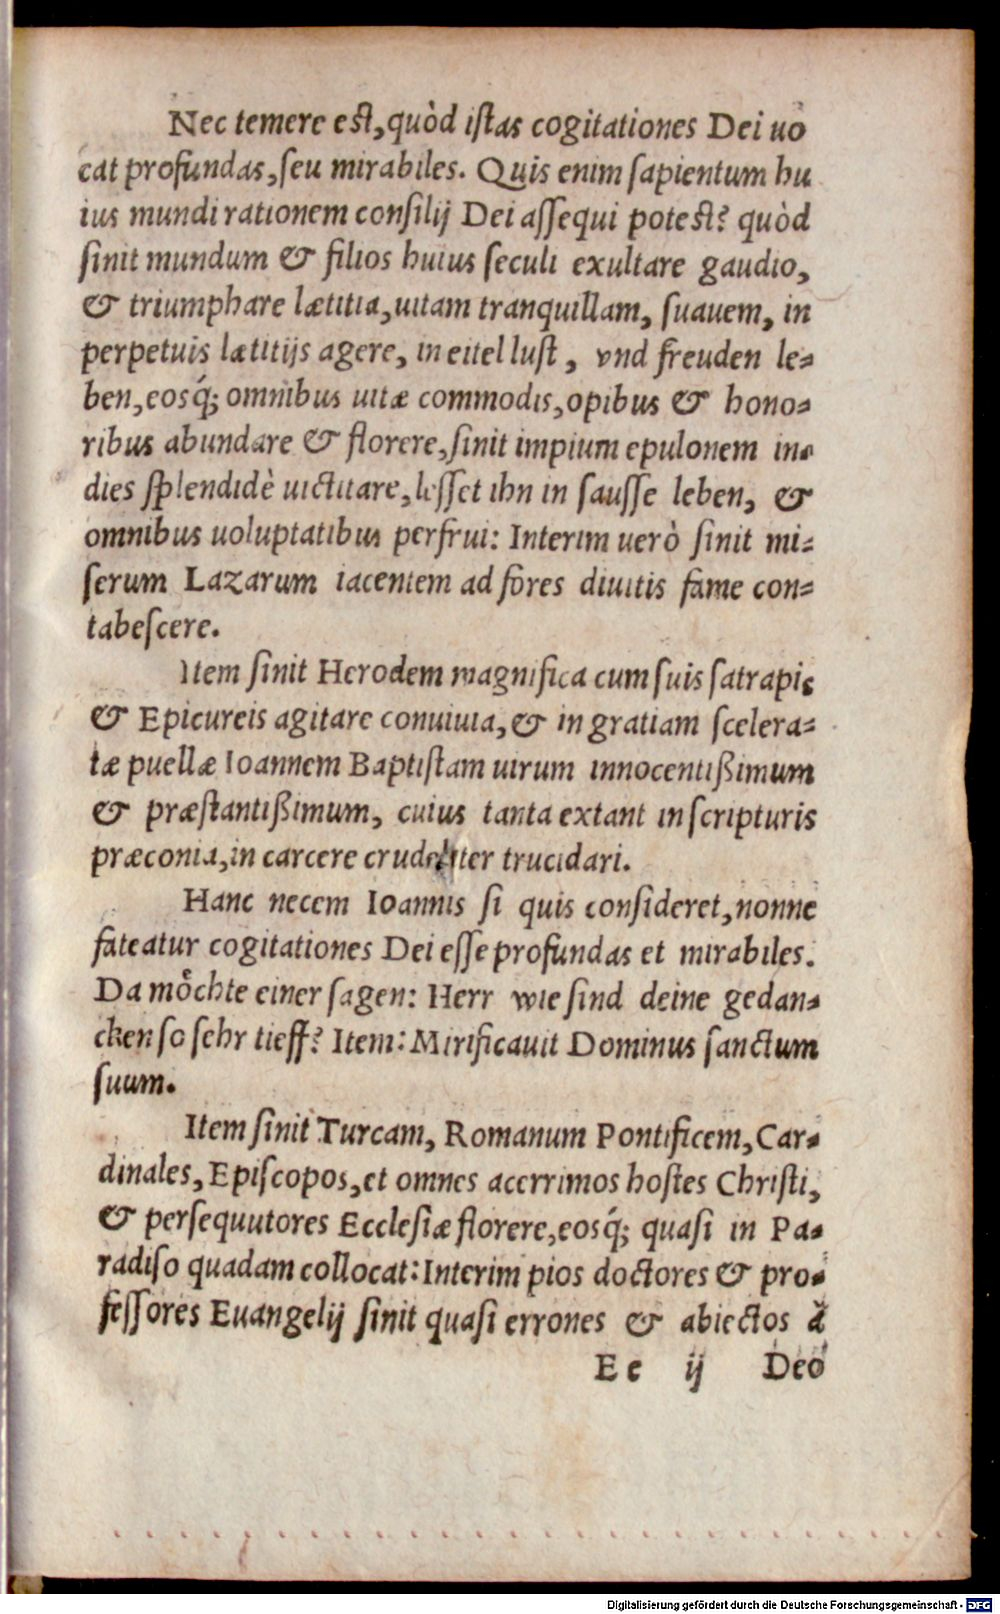 Nec temere est, quòd iſtas cogitationes Dei uo
cat profundas, ſeu mirabiles. Quis enim ſapientum hu
ius mundi rationem conſilij Dei aſſequi potest? quòd
ſinit mundum & filios huius ſeculi exultare gaudio,
& triumphare lætitia, uitam tranquillam, ſuauem, in
perpetuis lætitijs agere, in eitel luſt, vnd freuden le-
ben, eosq́; omnibus uitæ commodis, opibus & hono-
ribus abundare & florere, ſinit impium epulonem in-
dies ſplendidè uictitare, leſſet ihn in ſauſſe leben, &
omnibus uoluptatibus perfrui: Interim uerò ſinit mi-
ſerum Lazarum iacentem ad fores diuitis fame con-
tabeſcere.
Item ſinit Herodem magnifica cum ſuis ſatrapis
& Epicureis agitare conuiuia, & in gratiam ſcelera-
tæ puellæ Ioannem Baptiſtam uirum innocentißimum
& præſtantißimum, cuius tanta extant in ſcripturis
præconia, in carcere crudeliter trucidari.
Hanc necem Ioannis ſi quis conſideret, nonne
fateatur cogitationes Dei eſſe profundas et mirabiles.
Da moͤchte einer ſagen: Herr wie ſind deine gedan-
cken ſo ſehr tieff? Item: Mirificauit Dominus ſanctum
ſuum.
Item ſinit Turcam, Romanum Pontificem, Car-
dinales, Epiſcopos, et omnes acerrimos hoſtes Chriſti,
& perſequutores Eccleſiæ florere, eosq́; quaſi in Pa-
radiſo quadam collocat: Interim pios doctores & pro-
feſſores Euangelij ſinit quaſi errones & abiectos à
Ee ij Deo
Digitalisierung gefördert durch die Deutsche Forschungsgemeinschaft - DFG